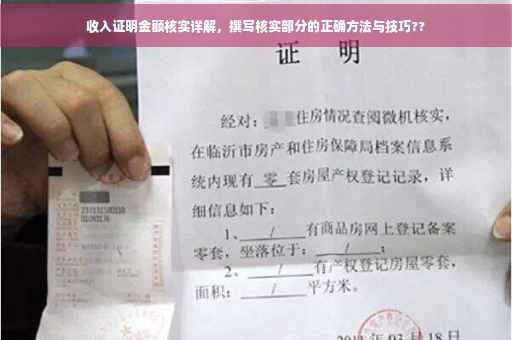 收入证明金额核实详解，撰写核实部分的正确方法与技巧??
证 明
经对：住房情况查阅微机核实，
在临沂市房产和住房保障局档案信息系
统内现有 零 套房屋产权登记记录，详
细信息如下：
1、 / 有商品房网上登记备案
零套，坐落位于： / ；
2、 / 有产权登记房屋零套，
面积： / 平方米。
03月18日